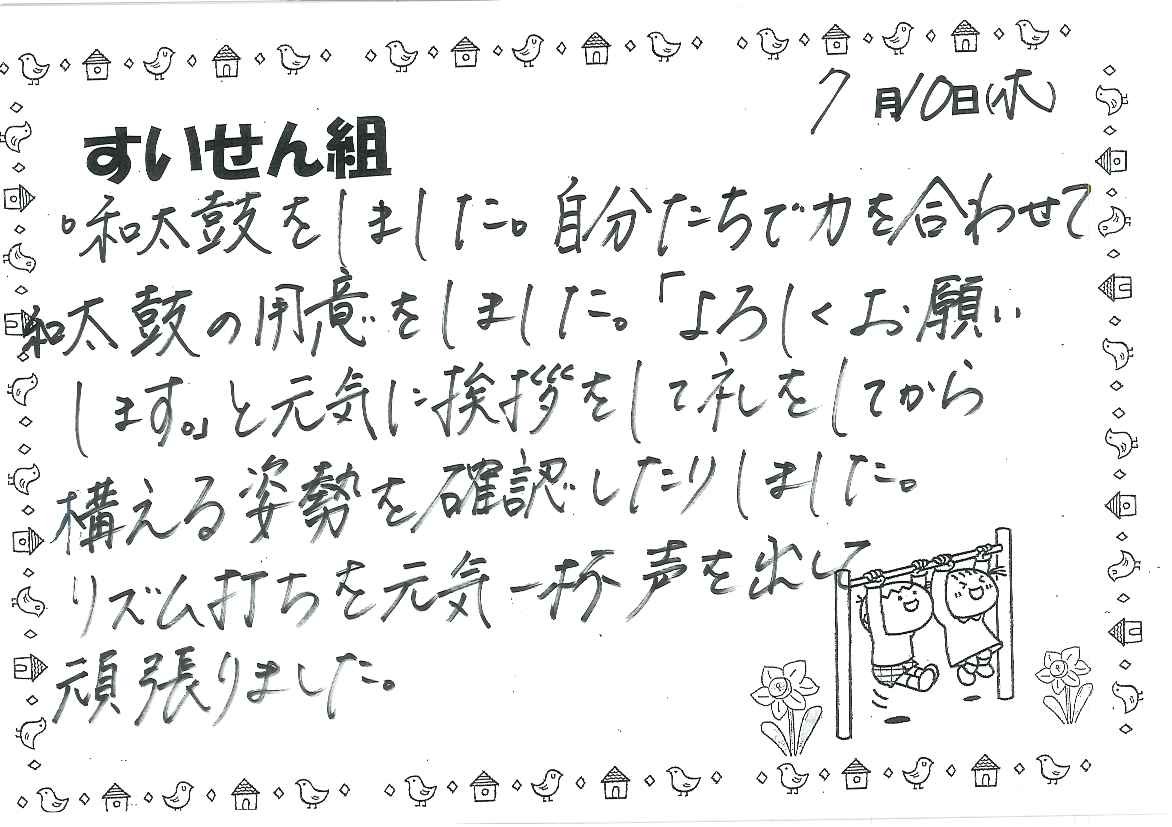 7月10日(木)
すいせん組
。和太鼓をしました。自分たちで力を合わせて
和太鼓の用意をしました。「よろしくお願い
します。」と元気に挨拶をして礼をしてから
構える姿勢を確認したりしました。
リズム打ちを元気一杯声を出して
頑張りました。